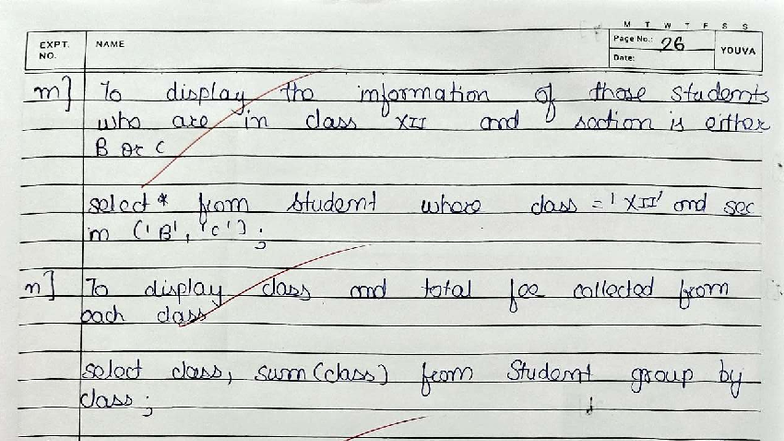 M T W T F S S
EXPT. NO. NAME Page No.: 26 YOUVA
Date:
m] To display the information of those students
who are in class XII and section is either
B or C
select * from student where class = 'XII' and sec
in ('B', 'C');
n] To display class and total fee collected from
each class
select class, sum(class) from Student group by
class;